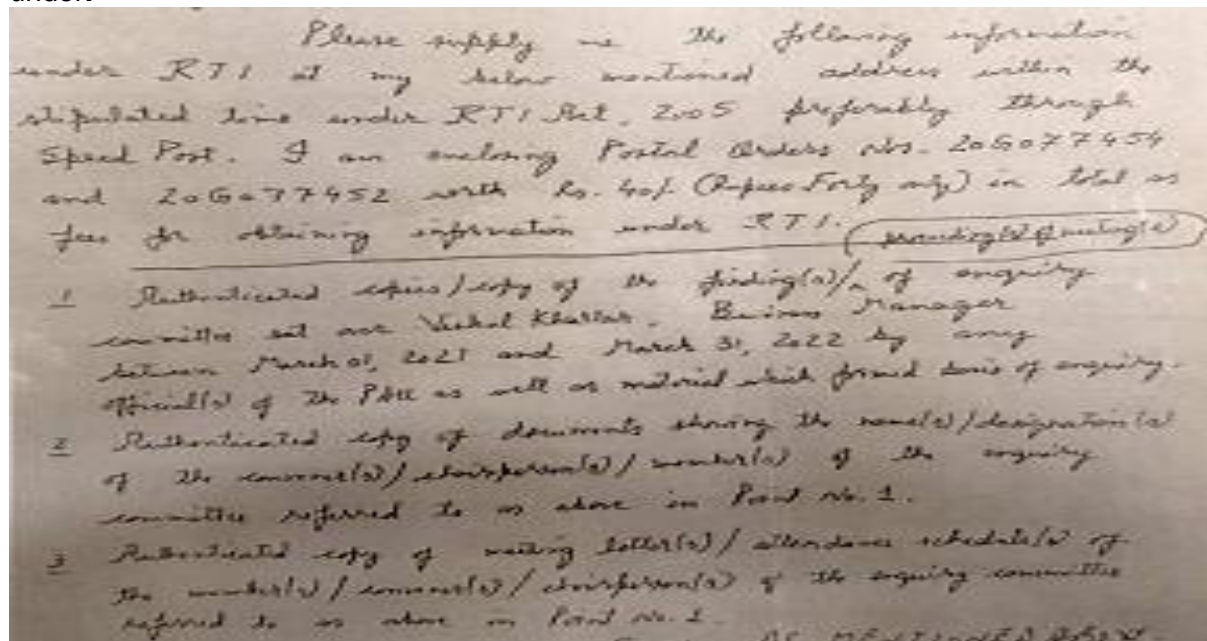 under
Please supply me the following information
under RTI at my below mentioned address within the
stipulated time under RTI Act, 2005 preferably through
Speed Post. I am enclosing Postal Orders Nos. 20G077454
and 20G077452 worth Rs. 40/- (Rupees Forty only) in total as
fees for obtaining information under RTI. proceeding(s) of meeting(s)
1 Authenticated copies/copy of the finding(s)/^ of enquiry
committee set over Khattar, Business Manager
between March 01, 2021 and March 31, 2022 by any
official(s) of the as well as material which formed basis of enquiry.
2 Authenticated copy of documents showing the name(s)/designation(s)
of the convenor(s)/chairperson(s)/member(s) of the enquiry
committee referred to as above in Point No. 1.
3 Authenticated copy of meeting letter(s)/attendance schedule(s) of
the member(s)/convenor(s)/chairperson(s) of the enquiry committee
referred to as above in Point No. 1.
AS MENTIONED BELOW